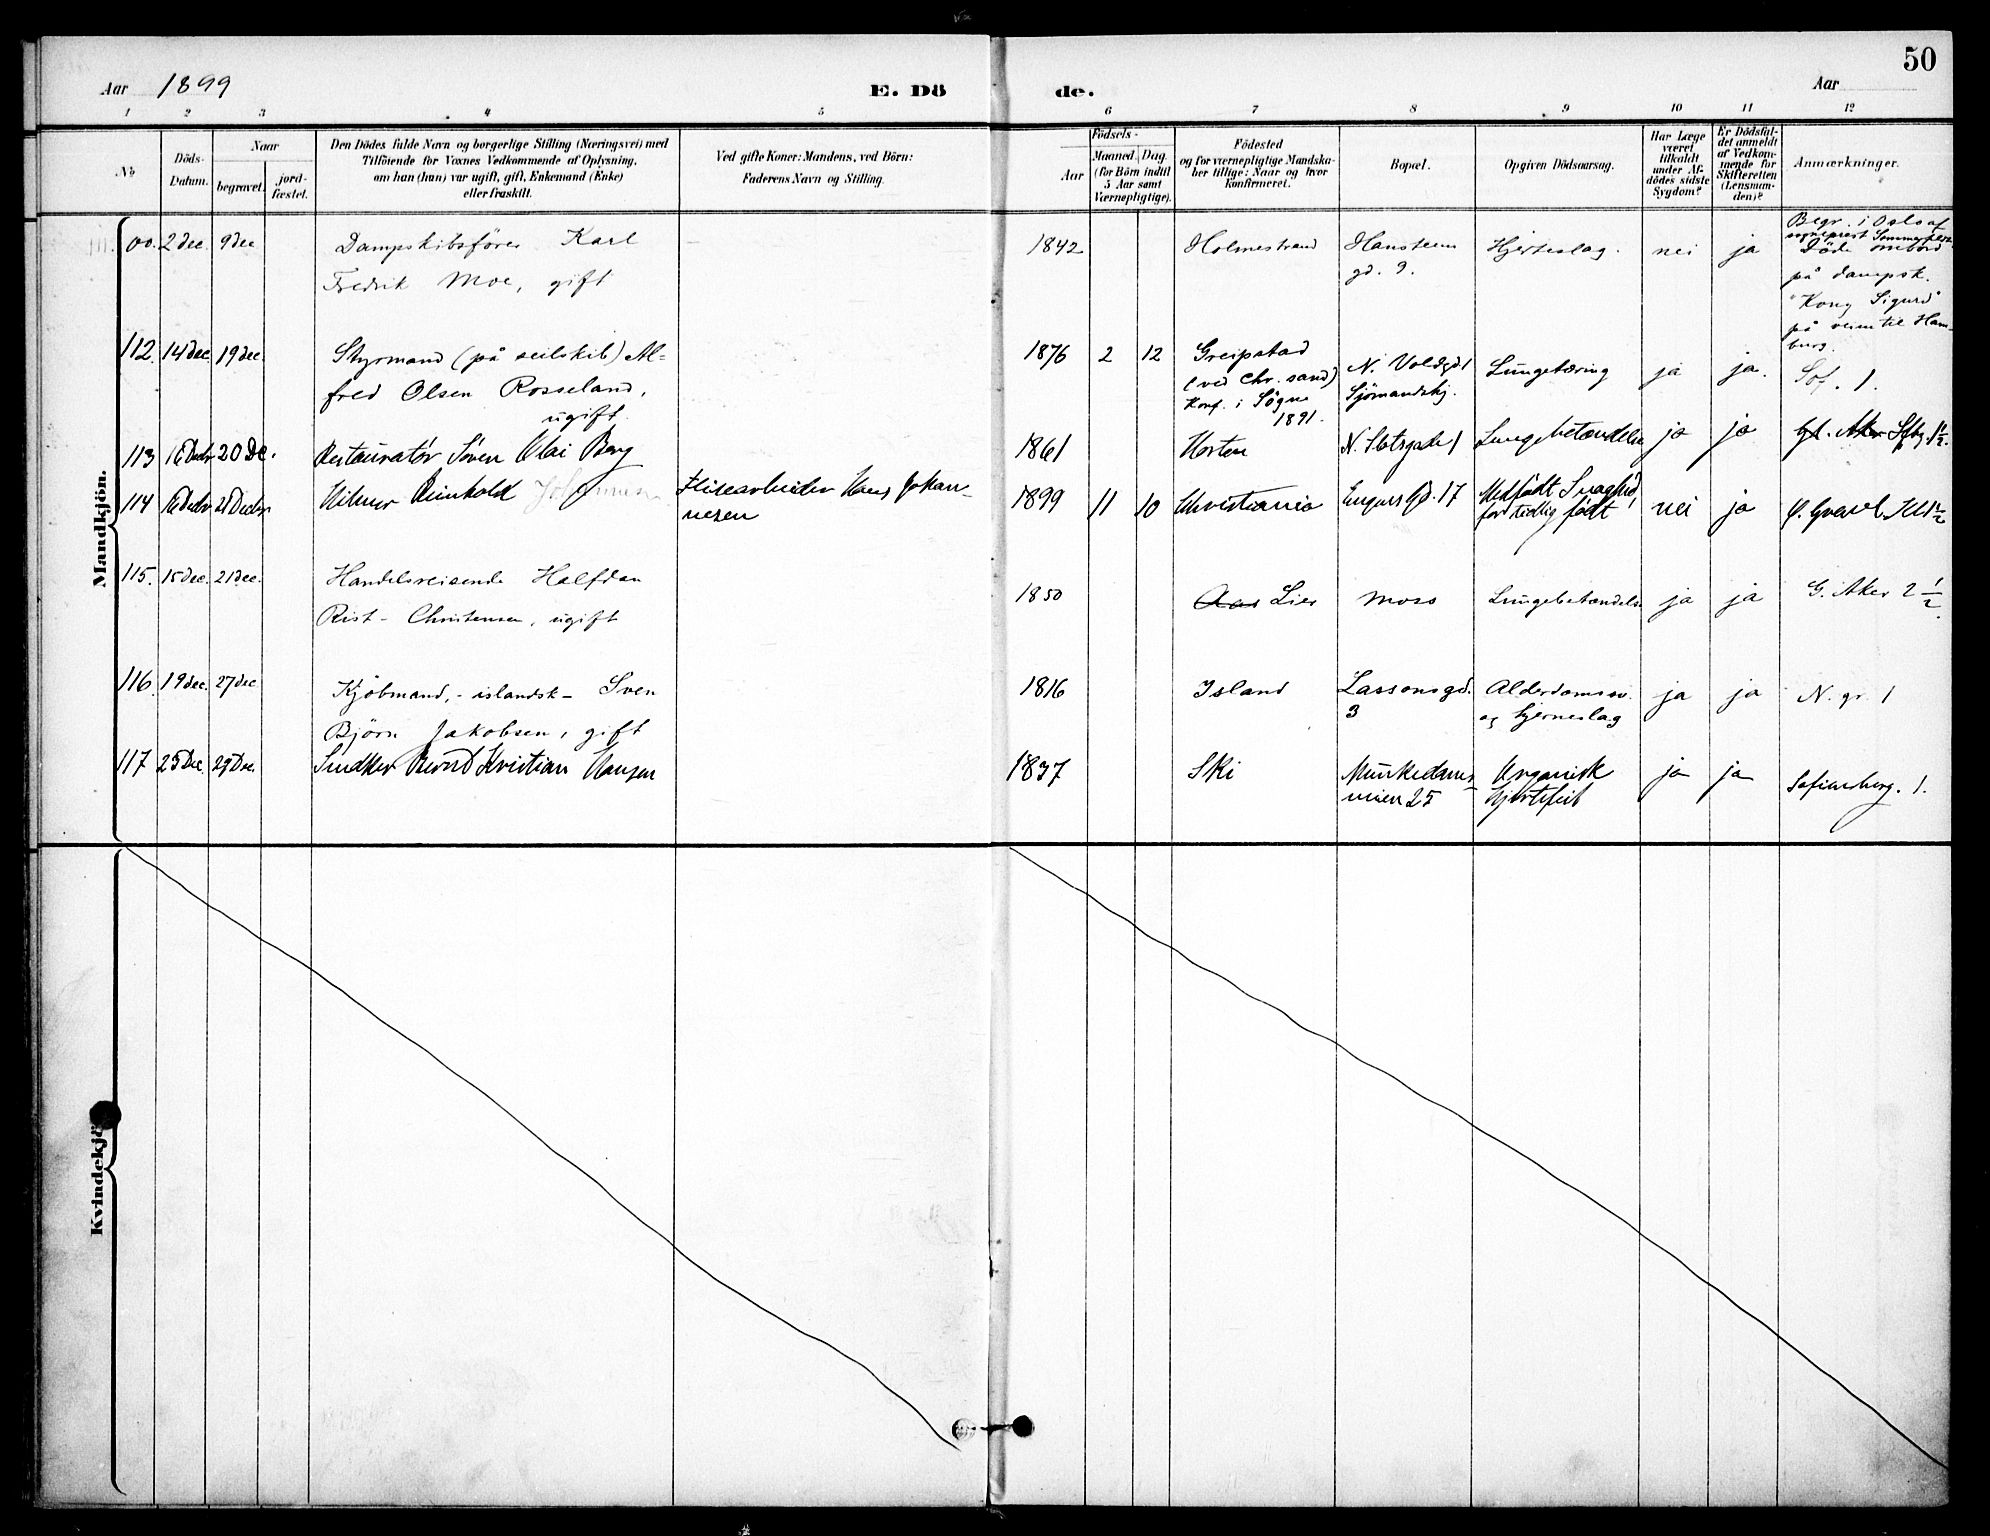 50
Aar 1899
E. Dö
de.
Aar
1 2 3 4 5 6 7 8 9 10 11 12
No
Döds-Datum.
Naar
begravet.
jord-fæstet.
Den Dödes fulde Navn og borgerlige Stilling (Næringsvei) med
Tilföiende for Voxnes Vedkommende af Oplysning,
om han (hun) var ugift, gift, Enkemand (Enke)
eller fraskilt.
Ved gifte Koner: Mandens, ved Börn:
Faderens Navn og Stilling.
Födsels-
Aar
Maaned. Dag.
(for Börn indtil
5 Aar samt
Værnepligtige).
Födested
og for værnepligtige Mandska-
ber tillige: Naar og hvor
konfirmeret.
Bopæl.
Opgiven Dödsaarsag.
Har Læge
været
tilkaldt
under Af-
dödes sidste
Sygdom?
Er Dödsfal-
det anmeldt
af Vedkom-
mende for
Skifteretten
(Lensman-
den)?
Anmærkninger.
Mandkjön.
00. 2 dec. 9 dec Dampskibsförer Karl
Fredrik Moe, gift
1842 Holmestrand Hansteens
gd. 9. Hjerteslag. nei ja
Begr. i Oslo af
sogneprest Sommerfeldt
Döde ombord
på dampsk.
"Kong Sigurd"
på veien til Ham-
burg.
112. 14 dec. 19 dec. Styrmand (på seilskib) Al-
fred Olsen Rosseland,
ugift.
1876 2 12 Greipstad
(ved Chr. sand)
Konf. i Sögne
1891.
N. Voldgd 1
Sjömandshj.
Lungetæring ja ja. Sof. 1.
113 16 Decbr 20 De. Restauratør Søren Olai Berg
1861 Horten N. Slotsgade 1 Lungebetændelse ja ja Gl. Aker Sfbg. 1½.
114 16 Decbr 21 Decbr Hilmer Reinhold Johannesen
Flisearbeider Hans Johan-
nesen
1899 11 10 Christiania Enguns Gd. 17 Medfødt Svaghed,
for tidlig født nei ja
115. 15 dec. 21 dec. Handelsreisende Halfdan
Rist-Christensen, ugift
1850 Aas Lier Moss Lungebetændelse ja ja G. Aker 2 ½.
116. 19 dec. 27 dec Kjöbmand, - islandsk - Sven
Björn Jakobsen, gift
1816 Island Lassonsgd.
3 Alderdomssv.
og hjerneslag ja ja N. gr. 1
117 25 Dec 29 Dec. Snedker Bernt Kristian Hansen
1837 Ski Munkedams-
veien 25 Organisk
Hjertefeil ja ja Sofienberg. 1.
Kvindekjö